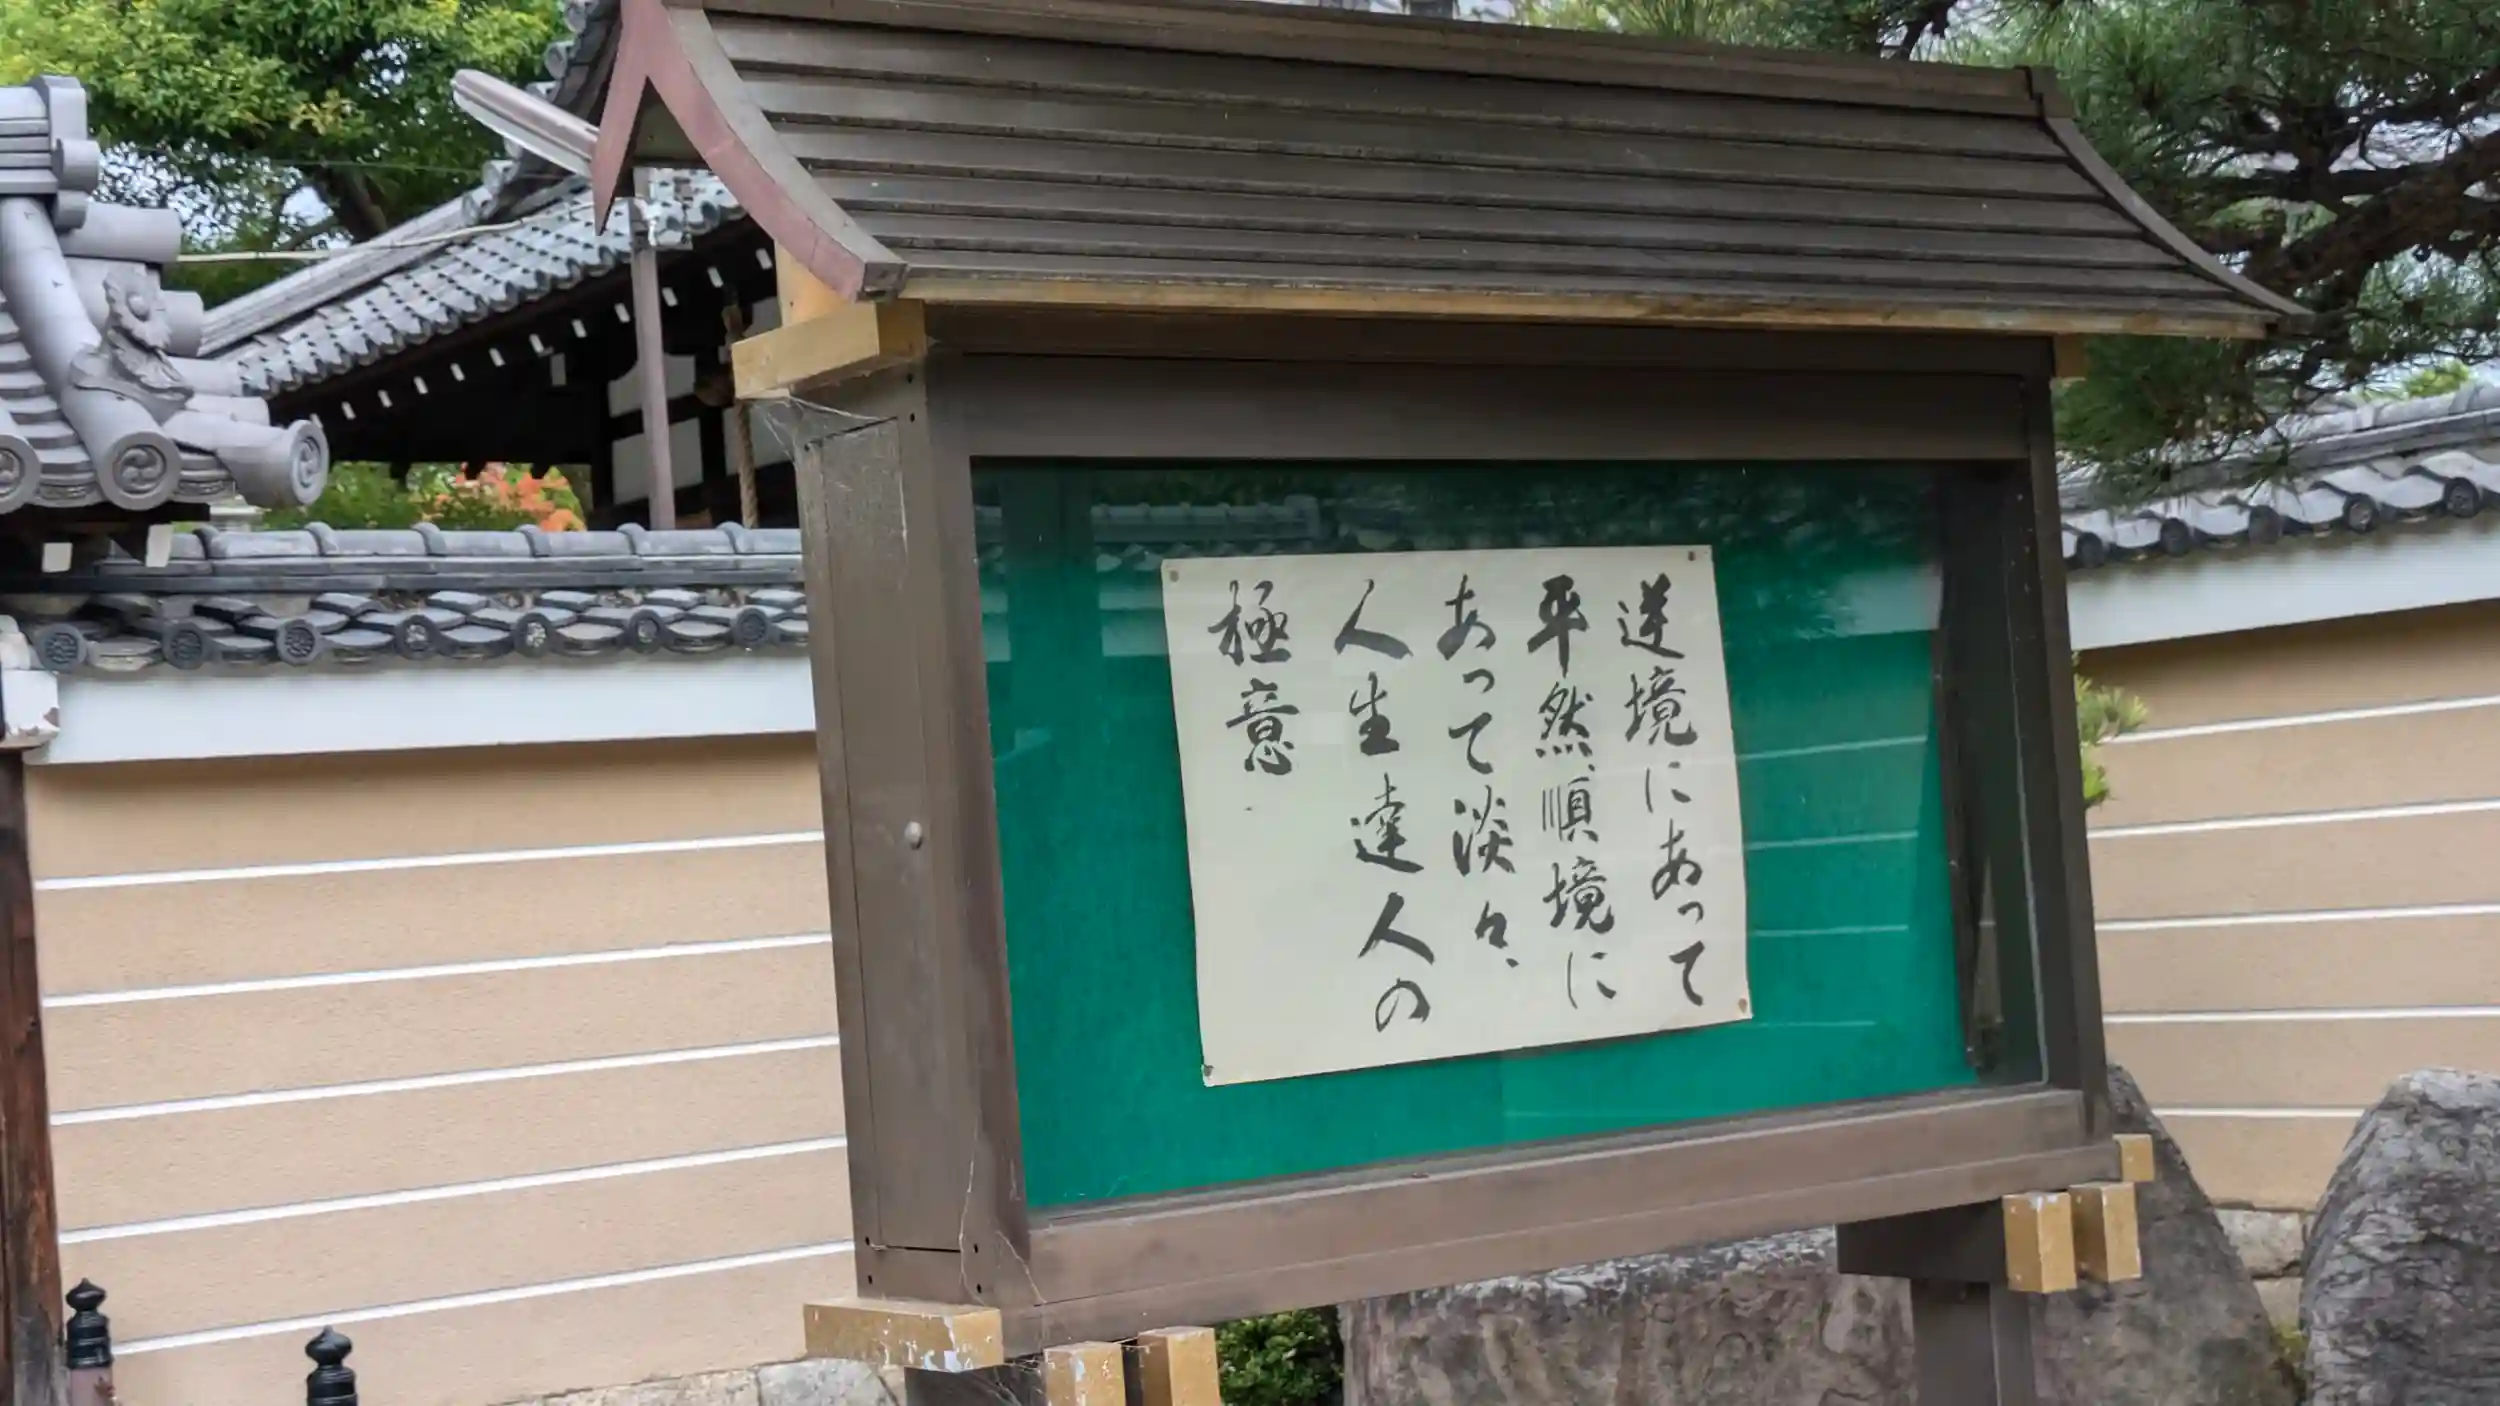 逆境にあって
平然、順境に
あって淡々、
人生達人の
極意